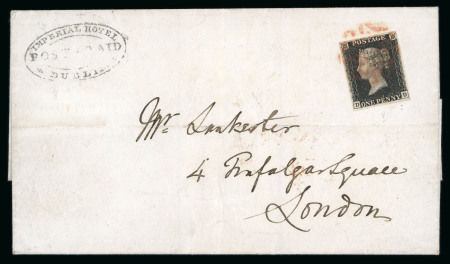 IMPERIAL HOTEL
POST PAID
DUBLIN
POSTAGE
ONE PENNY
Mr. Lankester
4 Trafalgar Square
London